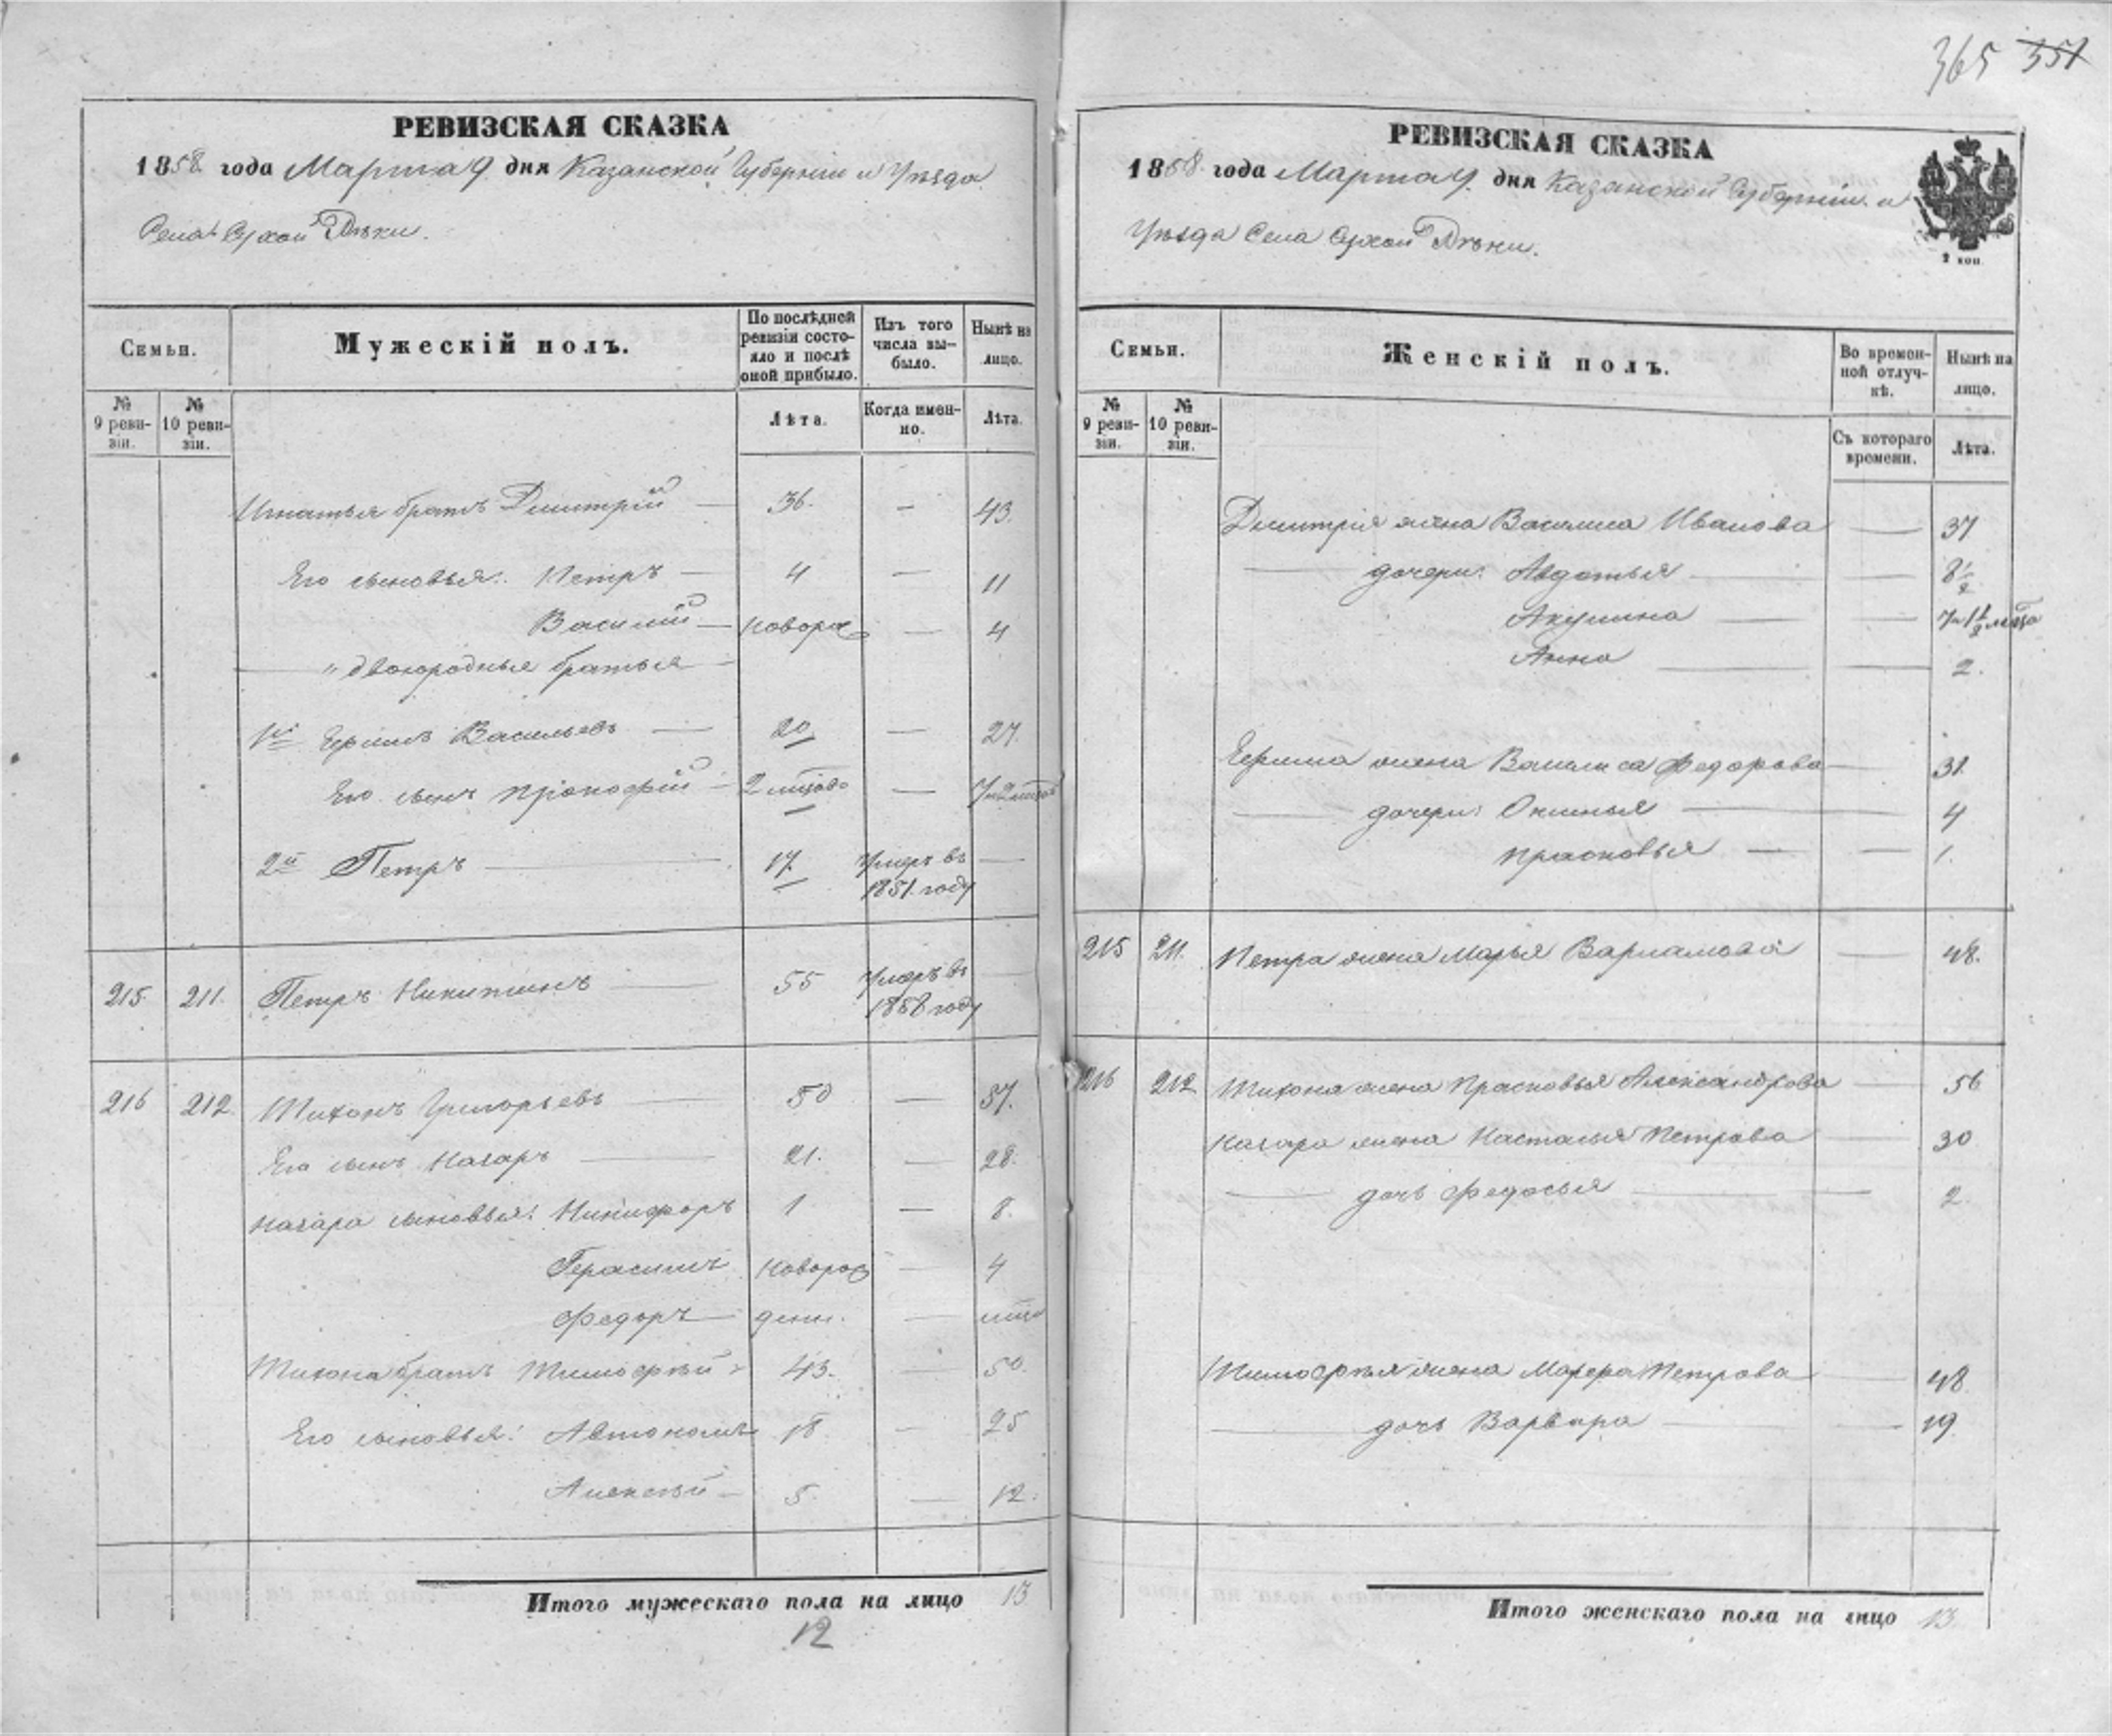 365 351
РЕВИЗСКАЯ СКАЗКА
1858 года Марта 9 дня Казанской Губерніи и Уѣзда
Села Сухой Рѣки.
Семьи.
Мужескій полъ.
По послѣдней ревизіи состояло и послѣ оной прибыло.
Изъ того числа выбыло.
Нынѣ на лицо.
№ 9 ревизіи.
№ 10 ревизіи.
Лѣта.
Когда именно.
Лѣта.
Игнатья братъ Дмитрій — 36. — 43.
Его сыновья: Петръ — 4 — 11
Василій — новорож — 4
— " двоюродные братья —
1й Ефимъ Васильевъ — 20 — 27.
Его сынъ Прокофій — 2 — 7
2й Петръ — 17. Умеръ въ —
1851. году
215 211. Петръ Никитинъ — 55 Умеръ въ —
1858 году
216 212. Тихонъ Григорьевъ — 50 — 57.
Его сынъ Назаръ — 21. — 28.
Назара сыновья: Никифоръ 1 — 8.
Герасимъ новорож — 4
Федоръ — денн. —
Тихона братъ Тимофѣй - 43. — 50.
Его сыновья: Автономъ 18 — 25
Алексѣй — 5. — 12.
Итого мужескаго пола на лицо 13
12
РЕВИЗСКАЯ СКАЗКА
1858 года Марта 9. дня Казанской Губерніи и
Уѣзда Села Сухой Рѣки.
2 коп.
Семьи.
Женскій полъ.
Во временной отлучкѣ.
Нынѣ на лицо.
№ 9 ревизіи.
№ 10 ревизіи.
Съ котораго времени.
Лѣта.
Дмитрія жена Василиса Иванова — 37
— дочери: Авдотья — — 8½
Акулина — —
Анна — — 2.
Ефима жена Василиса Федорова — 31.
— дочери: Оксинья — 4
Прасковья — — 1.
215 211. Петра жена Марья Варламова — 48.
216 212 Тихона жена Прасковья Александрова — 56
Назара жена Настасья Петрова — 30
— дочь Федосья — — 2.
Тимофѣя жена Петрова — 48
— дочь Варвара — — 19
Итого женскаго пола на лицо 13.